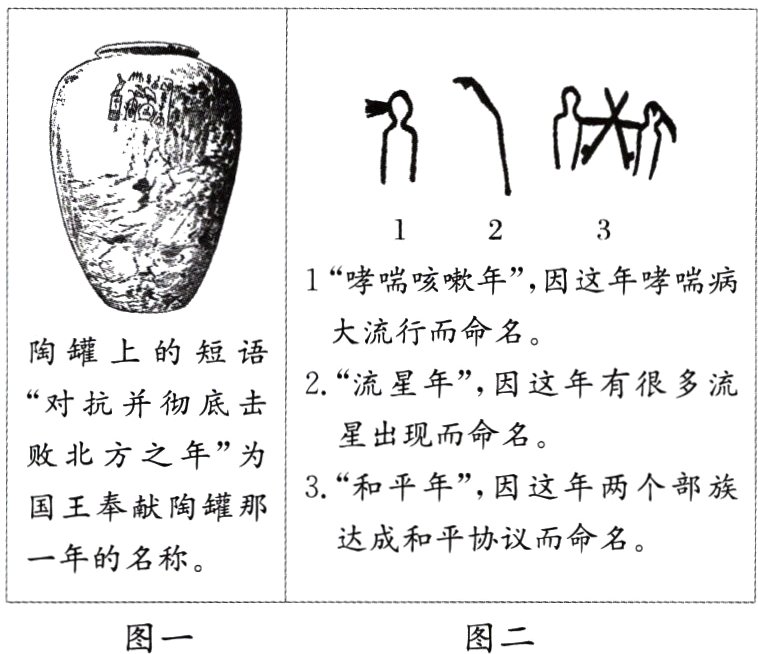 陶罐上的短语
“对抗并彻底击
败北方之年”为
国王奉献陶罐那
一年的名称。
1 2 3
1“哮喘咳嗽年”,因这年哮喘病
大流行而命名。
2.“流星年”,因这年有很多流
星出现而命名。
3.“和平年”,因这年两个部族
达成和平协议而命名。
图一
图二